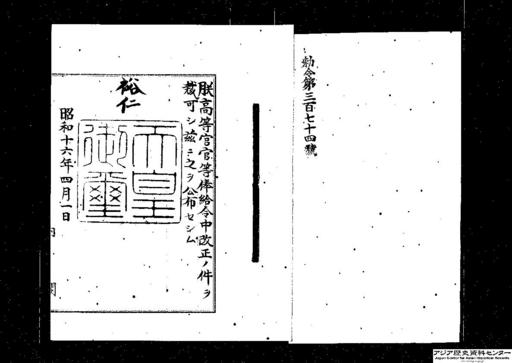 勅令第三百七十四號
朕高等官官等俸給令中改正ノ件ヲ
裁可シ茲ニ之ヲ公布セシム
裕仁
天皇
御璽
昭和十六年四月一日
内閣
アジア歴史資料センター
Japan Center for Asian Historical Records